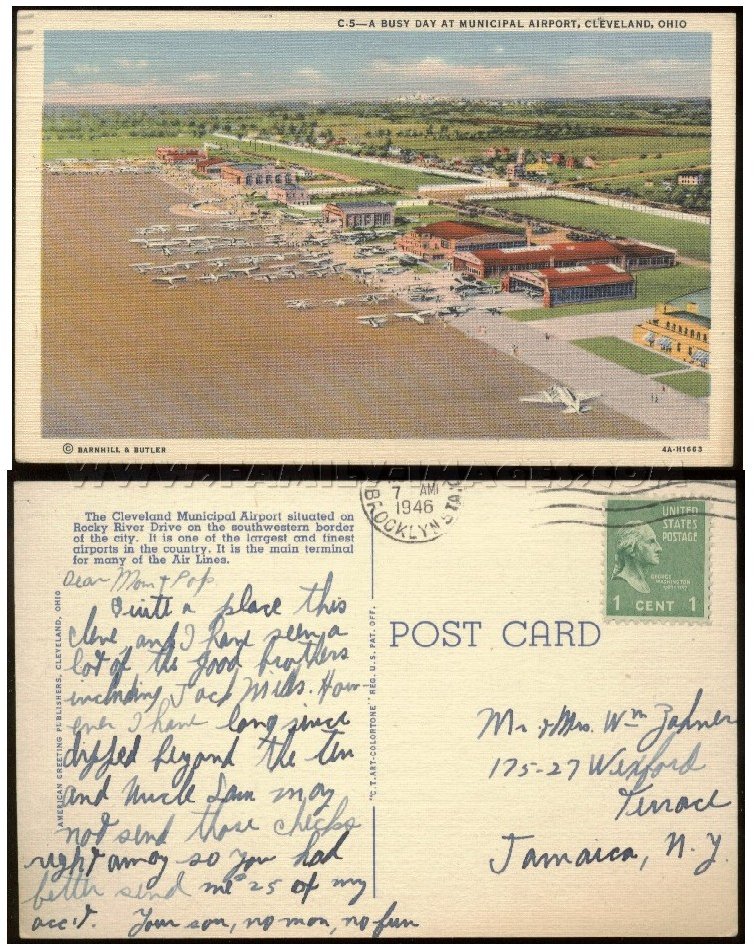 C-5—A BUSY DAY AT MUNICIPAL AIRPORT, CLEVELAND, OHIO
© BARNHILL & BUTLER
4A-H1663
WWW.FAMILY-IMAGES.COM
The Cleveland Municipal Airport situated on
Rocky River Drive on the southwestern border
of the city. It is one of the largest and finest
airports in the country. It is the main terminal
for many of the Air Lines.
7 AM
1946
BROOKLYN STA.
UNITED
STATES
POSTAGE
GEORGE
WASHINGTON
1 CENT 1
AMERICAN GREETING PUBLISHERS, CLEVELAND, OHIO
"C.T. ART-COLORTONE" REG. U.S. PAT. OFF.
POST CARD
Dear Mom & Pop
Quite a place this
cleve and I have seen a
lot of the good brothers
including Jack Mills. How-
ever I have long since
dipped beyond the ten
and Uncle Sam may
not send those checks
right away so you had
better send me 25 of my
acc't. Your son, no mon, no fun
Mr & Mrs. Wm Zahner
175-27 Wexford
Terrace
Jamaica, N.Y.